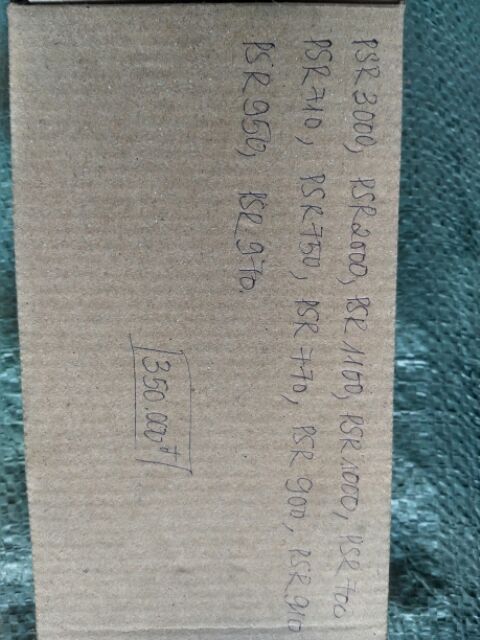 PSR 3000, PSR 2000, PSR 1100, PSR 1000, PSR 700
PSR 710, PSR 750, PSR 770, PSR 900, PSR 910
PSR 950, PSR 970.
350.000đ